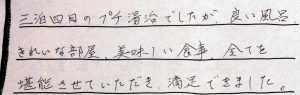 三泊四日のプチ湯治でしたが、良い風呂
きれいな部屋、美味しい食事、全てを
堪能させていただき、満足できました。